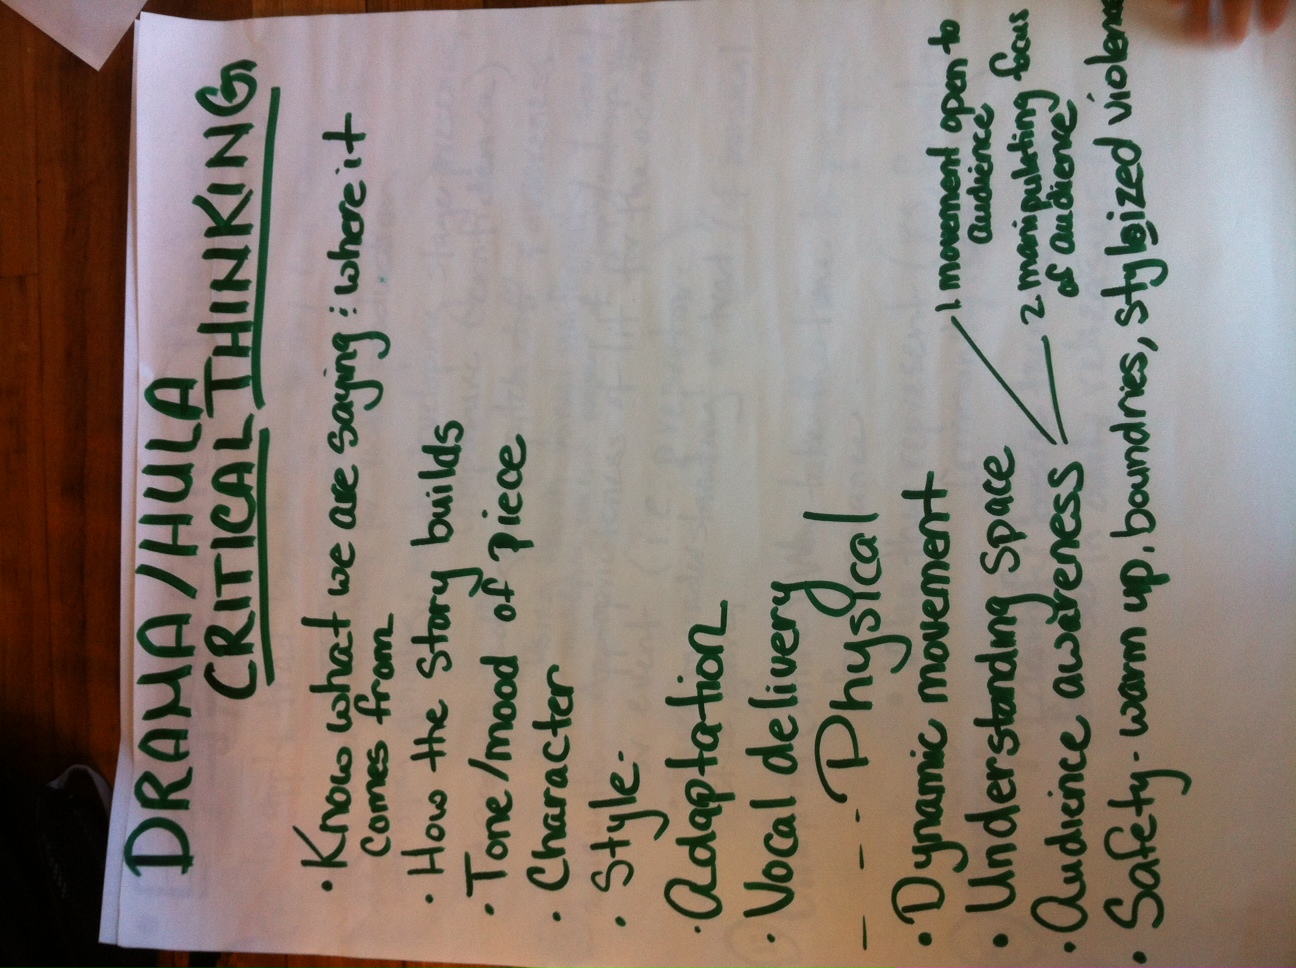 DRAMA/HULA
CRITICAL THINKING
• Know what we are saying : where it
comes from
• How the story builds
• Tone/mood of piece
• Character
• Style-
• Adaptation
• Vocal delivery
- - - Physical
• Dynamic movement
• Understanding space
• Audience awareness
1 movement open to
audience
2 manipulating focus
of audience
• Safety - warm up, boundries, stylized violence